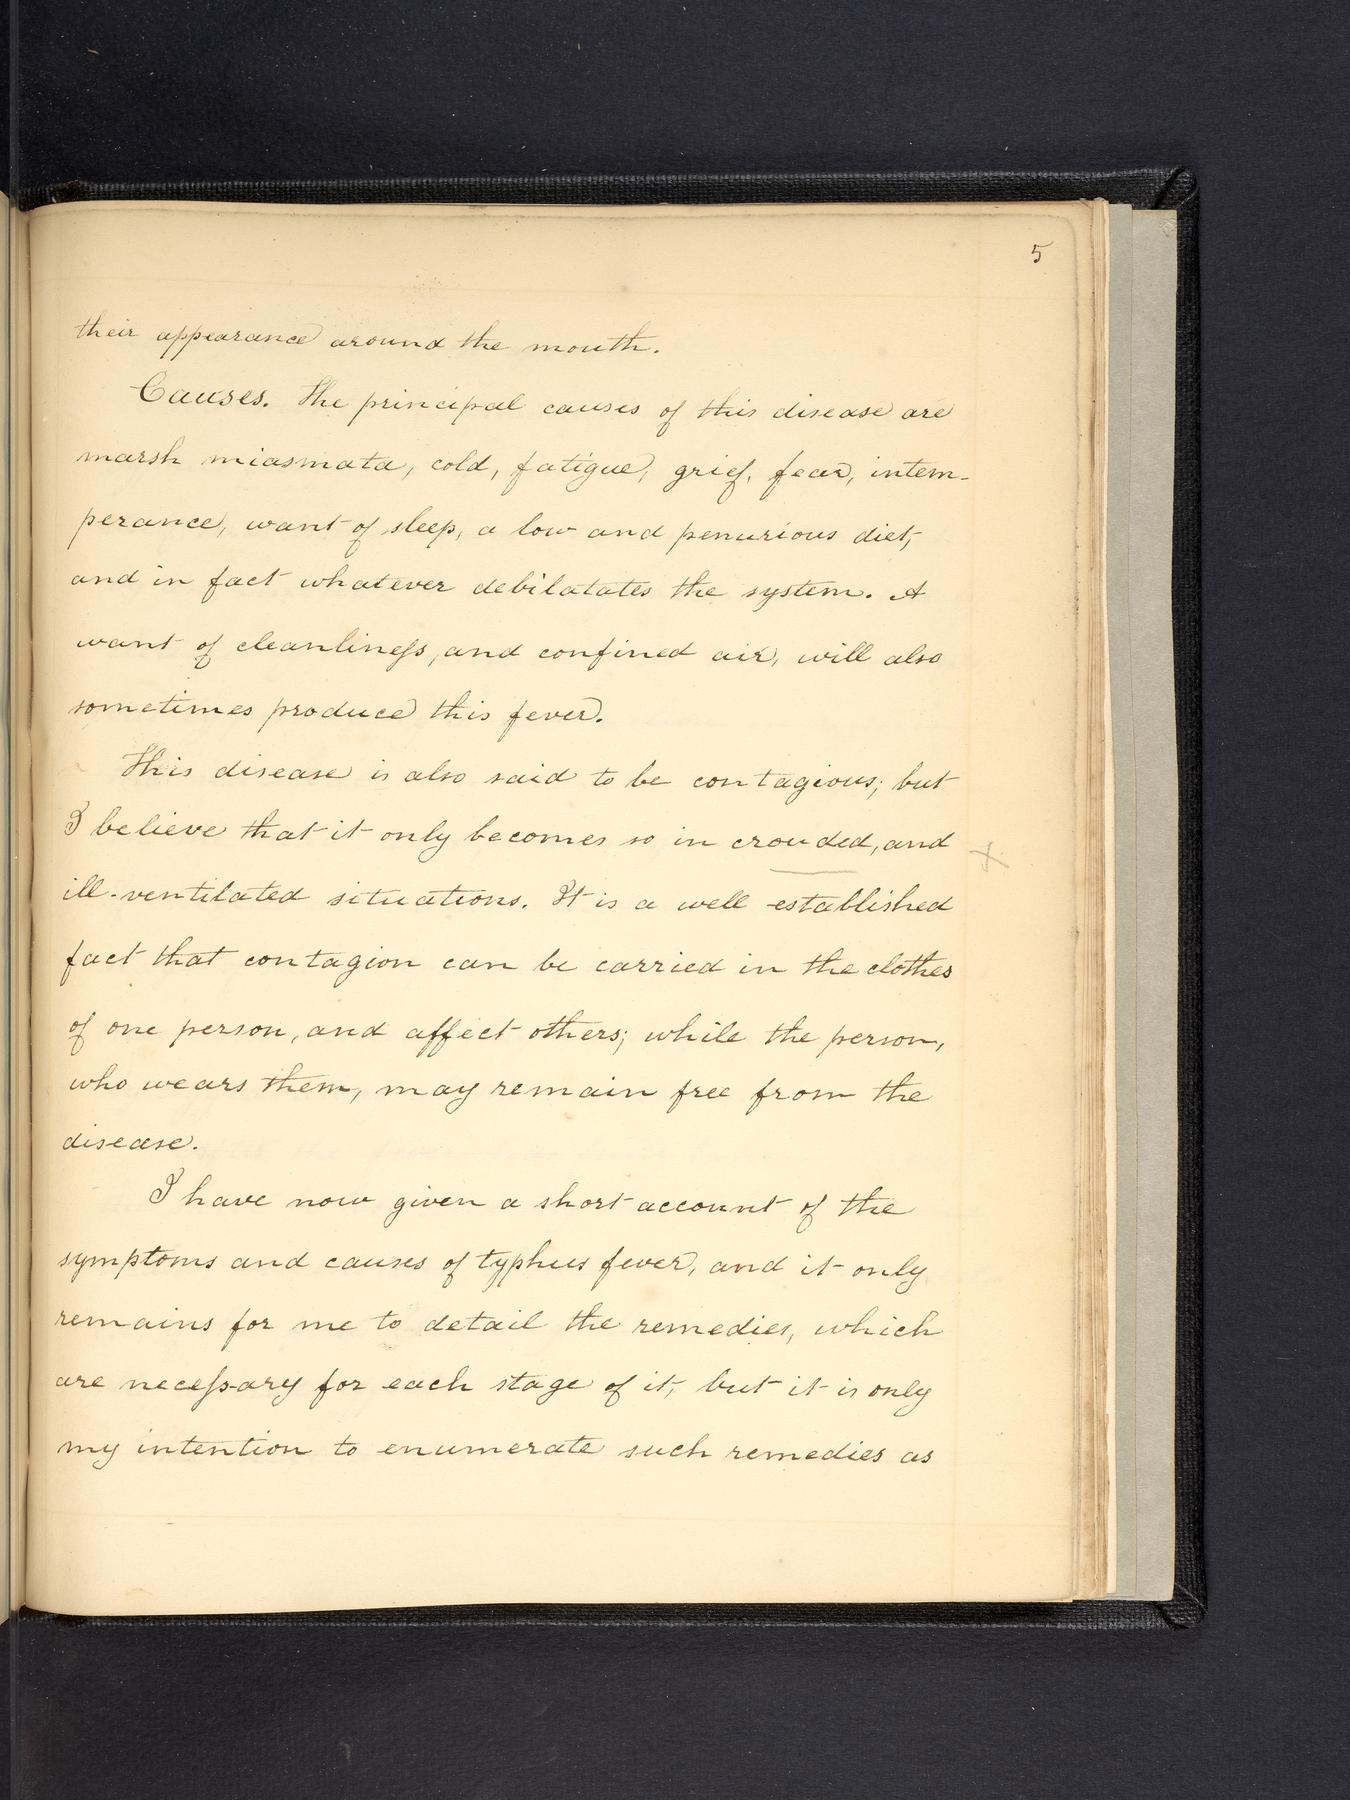 5
their appearance around the mouth.
Causes. The principal causes of this disease are
marsh miasmata, cold, fatigue, grief, fear, intem-
perance, want of sleep, a low and penurious diet,
and in fact whatever debilatates the system. A
want of cleanliness, and confined air, will also
sometimes produce this fever.
This disease is also said to be contagious; but
I believe that it only becomes so in crouded, and
ill-ventilated situations. It is a well established
fact that contagion can be carried in the clothes
of one person, and affect others; while the person,
who wears them, may remain free from the
disease.
I have now given a short account of the
symptoms and causes of typhus fever, and it only
remains for me to detail the remedies, which
are necessary for each stage of it, but it is only
my intention to enumerate such remedies as